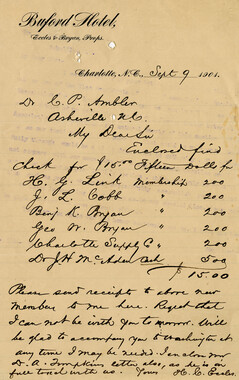 Buford Hotel,
Eccles & Bryan, Props.
Charlotte, N.C., Sept 9 1901.
Dr C. P. Ambler
Asheville N.C.
My Dear Sir
Enclosed find
Check for $15.00 Fifteen Dolls for
H. G. Link Membership 200
J. L. Cobb " 200
Benj R. Bryan " 200
Geo W. Bryan " 200
Charlotte Supply Co " 200
Dr J H McAden 500
$15.00
Please send receipts to above new
members to me here. Regret that
I can not be with you to morrow. Will
be glad to accompany you to Washington at
any time I may be needed. I enclose
Dr. A. Tompkins letter also, as he is in
full touch with us. Yours H. C. Eccles.